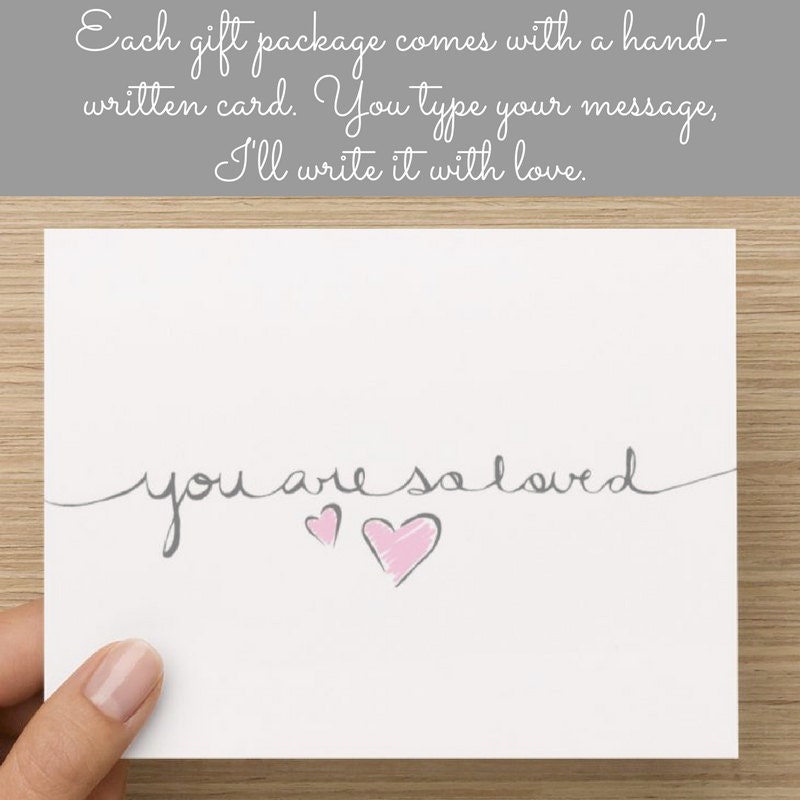 Each gift package comes with a hand-
written card. You type your message,
I'll write it with love.
you are so loved